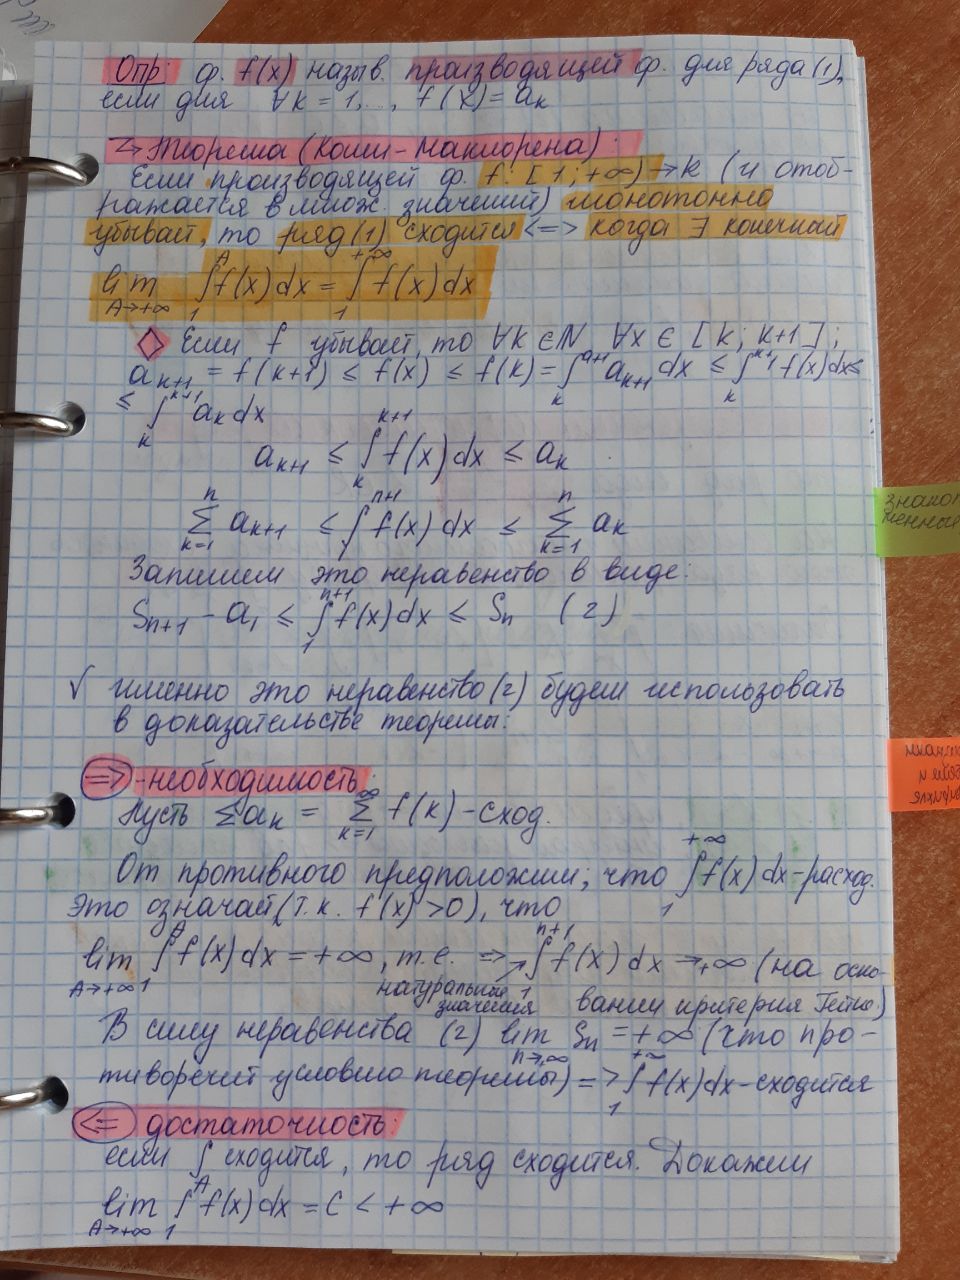 Опр: ф. f(x) назыв. производящей ф. для ряда (1),
если для ∀k = 1,..., f(x) = aₖ
Теорема (Коши-Маклорена):
Если производящей ф. f: [1; +∞) → R (и отоб-
ражается в множ. значений) монотонно
убывает, то ряд (1) сходится <=> когда ∃ конечный
lim_{A→+∞} ∫₁^A f(x) dx = ∫₁^{+∞} f(x) dx
Если f убывает, то ∀k ∈ N ∀x ∈ [k; k+1];
a_{k+1} = f(k+1) ≤ f(x) ≤ f(k) = ∫_k^{a+1} a_{k+1} dx ≤ ∫_k^{k+1} f(x) dx ≤
≤ ∫_k^{k+1} aₖ dx
a_{k+1} ≤ ∫_k^{k+1} f(x) dx ≤ aₖ
∑_{k=1}^n a_{k+1} ≤ ∫₁^{n+1} f(x) dx ≤ ∑_{k=1}^n aₖ
Запишем это неравенство в виде:
S_{n+1} - a₁ ≤ ∫₁^{n+1} f(x) dx ≤ Sₙ (2)
√ именно это неравенство (2) будем использовать
в доказательстве теоремы:
=> - необходимость:
Пусть ∑aₖ = ∑_{k=1}^∞ f(k) - сход.
От противного предположим, что ∫₁^{+∞} f(x) dx - расход.
Это означает (т.к. f(x) > 0), что
lim_{A→+∞} ∫₁^A f(x) dx = +∞, т.е. => ∫₁^{n+1} f(x) dx → +∞ (на осно-
натуральные значения
вании критерия Гейне)
В силу неравенства (2) lim_{n→∞} Sₙ = +∞ (что про-
тиворечит условию теоремы) => ∫₁^{+∞} f(x) dx - сходится
<= достаточность:
если ∫ сходится, то ряд сходится. Докажем
lim_{A→+∞} ∫₁^A f(x) dx = C < +∞
менные